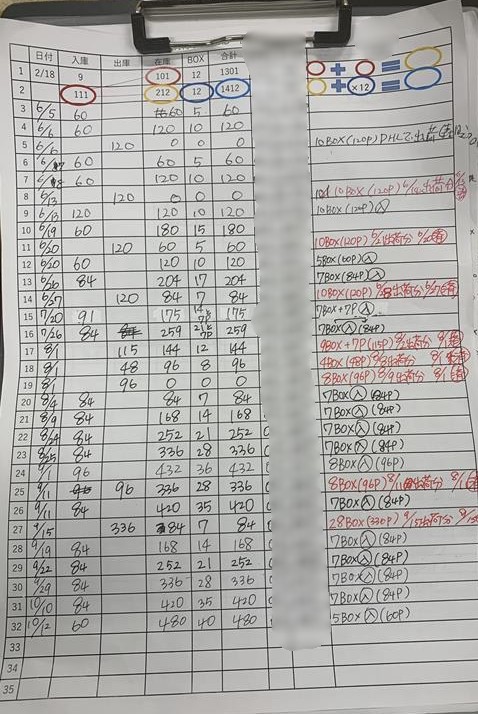 日付 入庫 出庫 在庫 BOX 合計
1 2/18 9 101 12 1301 + =
2 111 212 12 1412 + ×12 =
3 6/5 60 60 5 60
4 6/6 60 120 10 120
5 6/6 120 0 0 0 10BOX(120P)DHLで出荷
6 60 60 5 60
7 60 120 10 120
8 6/13 120 0 0 0 10BOX(120P)
9 6/13 120 120 10 120 10BOX(120P)入
10 6/19 60 180 15 180
11 6/20 120 60 5 60 10BOX(120P) 出荷分 済
12 6/20 60 120 10 120 5BOX(60P)入
13 6/26 84 204 17 204 7BOX(84P)入
14 6/27 120 84 7 84 10BOX(120P) 出荷分 6/27済
15 7/20 91 175 14 7P 175 7BOX+7P入
16 7/26 84 259 21と7P 259 7BOX入(84P)
17 8/1 115 144 12 144 9BOX+7P(115P) 出荷分 8/1済
18 8/1 48 96 8 96 4BOX(48P) 出荷分 8/1済
19 8/1 96 0 0 0 8BOX(96P) 出荷分 8/1済
20 8/4 84 84 7 84 7BOX入(84P)
21 8/9 84 168 14 168 7BOX入(84P)
22 84 252 21 252 7BOX入(84P)
23 8/25 84 336 28 336 7BOX入(84P)
24 9/1 96 432 36 432 8BOX入(96P)
25 9/11 96 336 28 336 8BOX(96P) 出荷分
26 9/11 84 420 35 420 7BOX入(84P)
27 9/15 336 84 7 84 28BOX(330P) 9/15出荷分
28 9/19 84 168 14 168 7BOX入(84P)
29 9/22 84 252 21 252 7BOX入(84P)
30 9/29 84 336 28 336 7BOX入(84P)
31 10/10 84 420 35 420 7BOX入(84P)
32 10/12 60 480 40 480 5BOX入(60P)
33
34
35